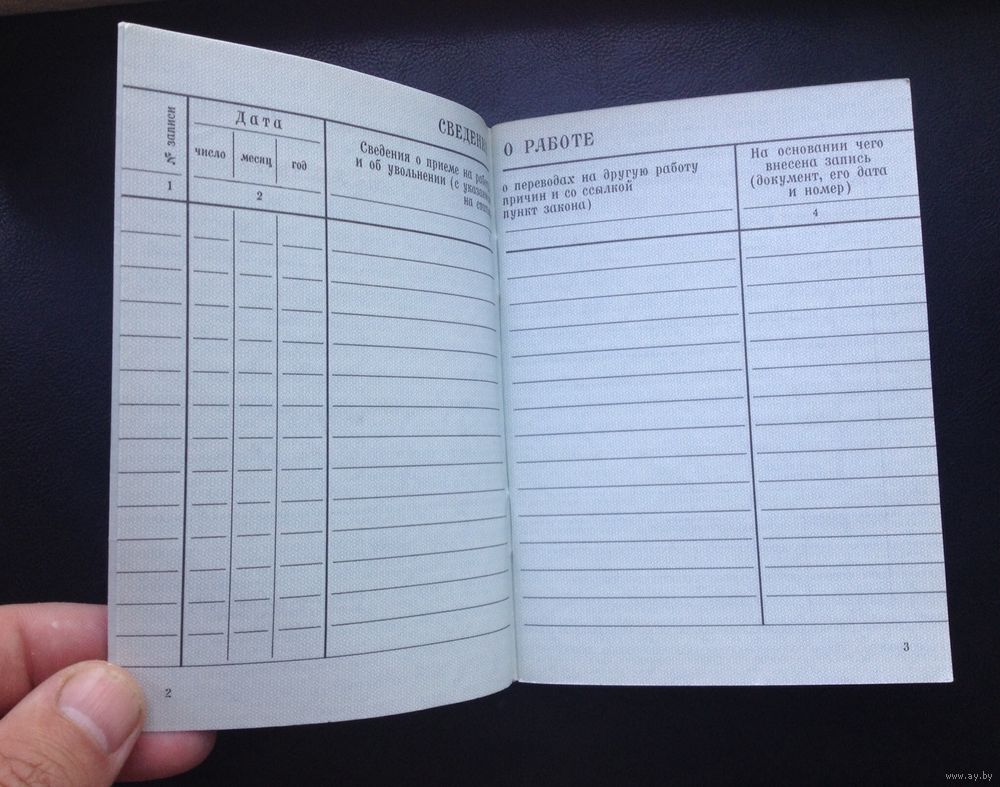 СВЕДЕНИ
№ записи
Дата
число
месяц
год
Сведения о приеме на рабо
и об увольнении (с указани
на стат
1
2
2
О РАБОТЕ
о переводах на другую работу
причин и со ссылкой
пункт закона)
На основании чего
внесена запись
(документ, его дата
и номер)
4
3
www.ay.by